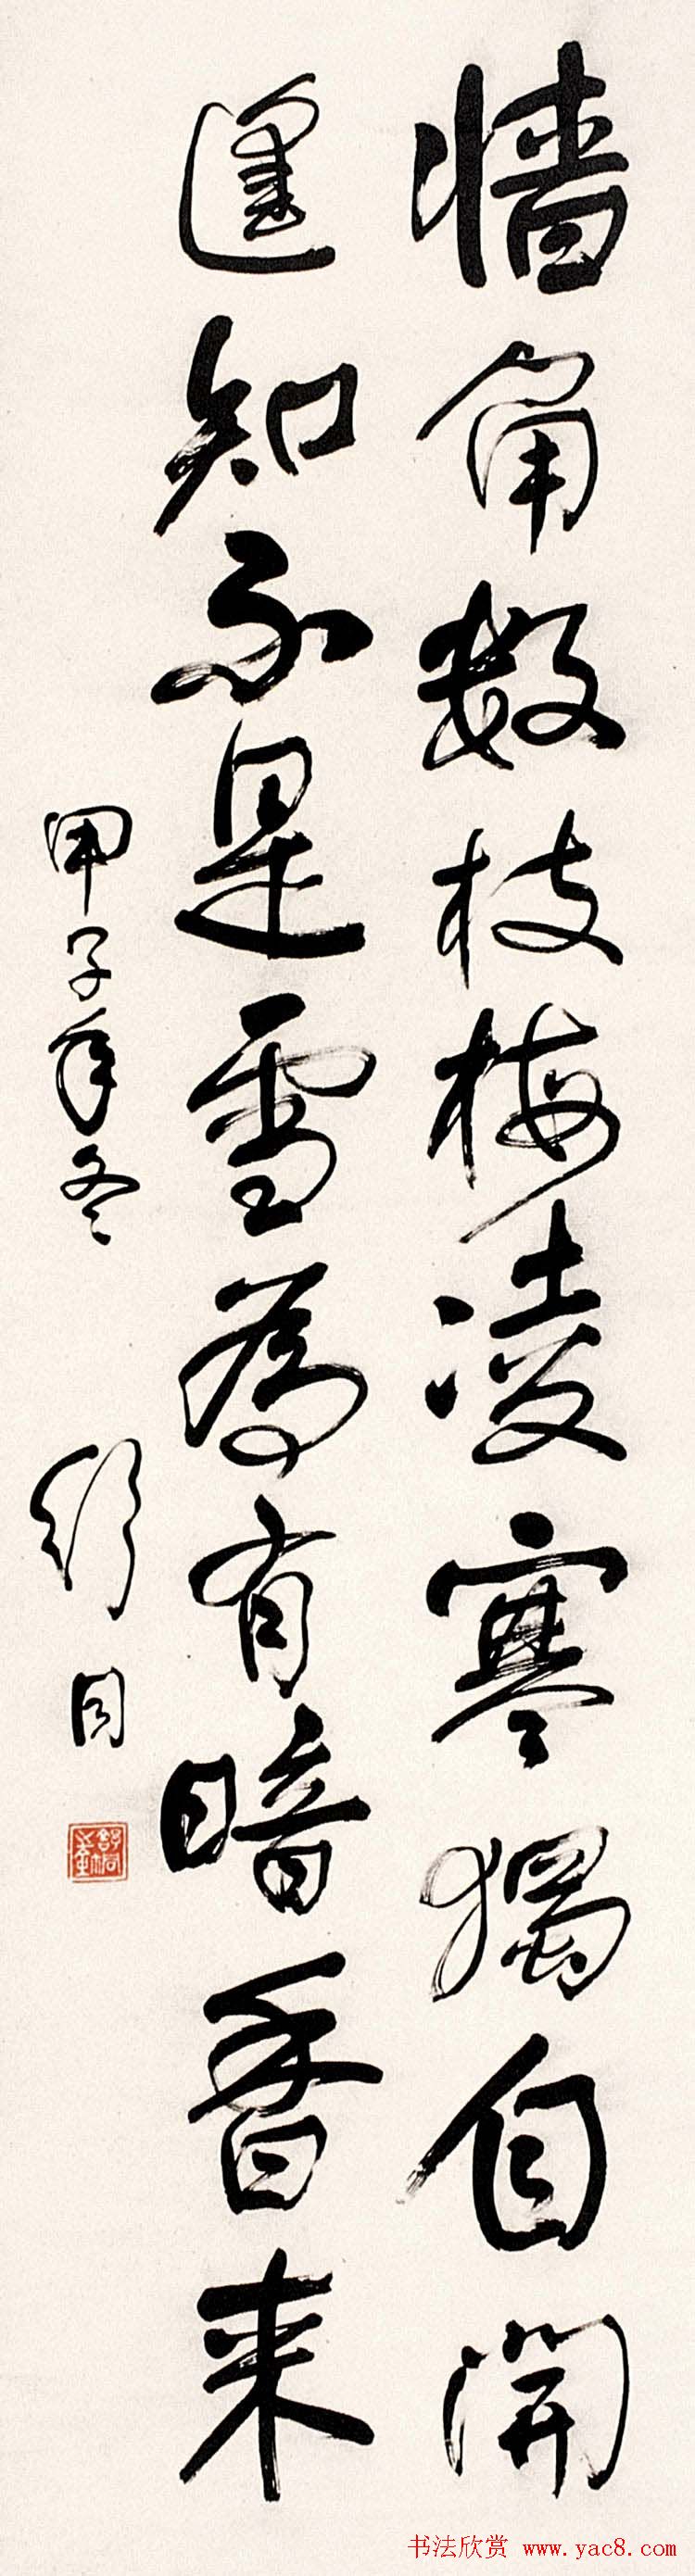 墻角数枝梅凌寒獨自開
遥知不是雪為有暗香来
甲子年冬
舒同
舒同
书法欣赏 www.yac8.com